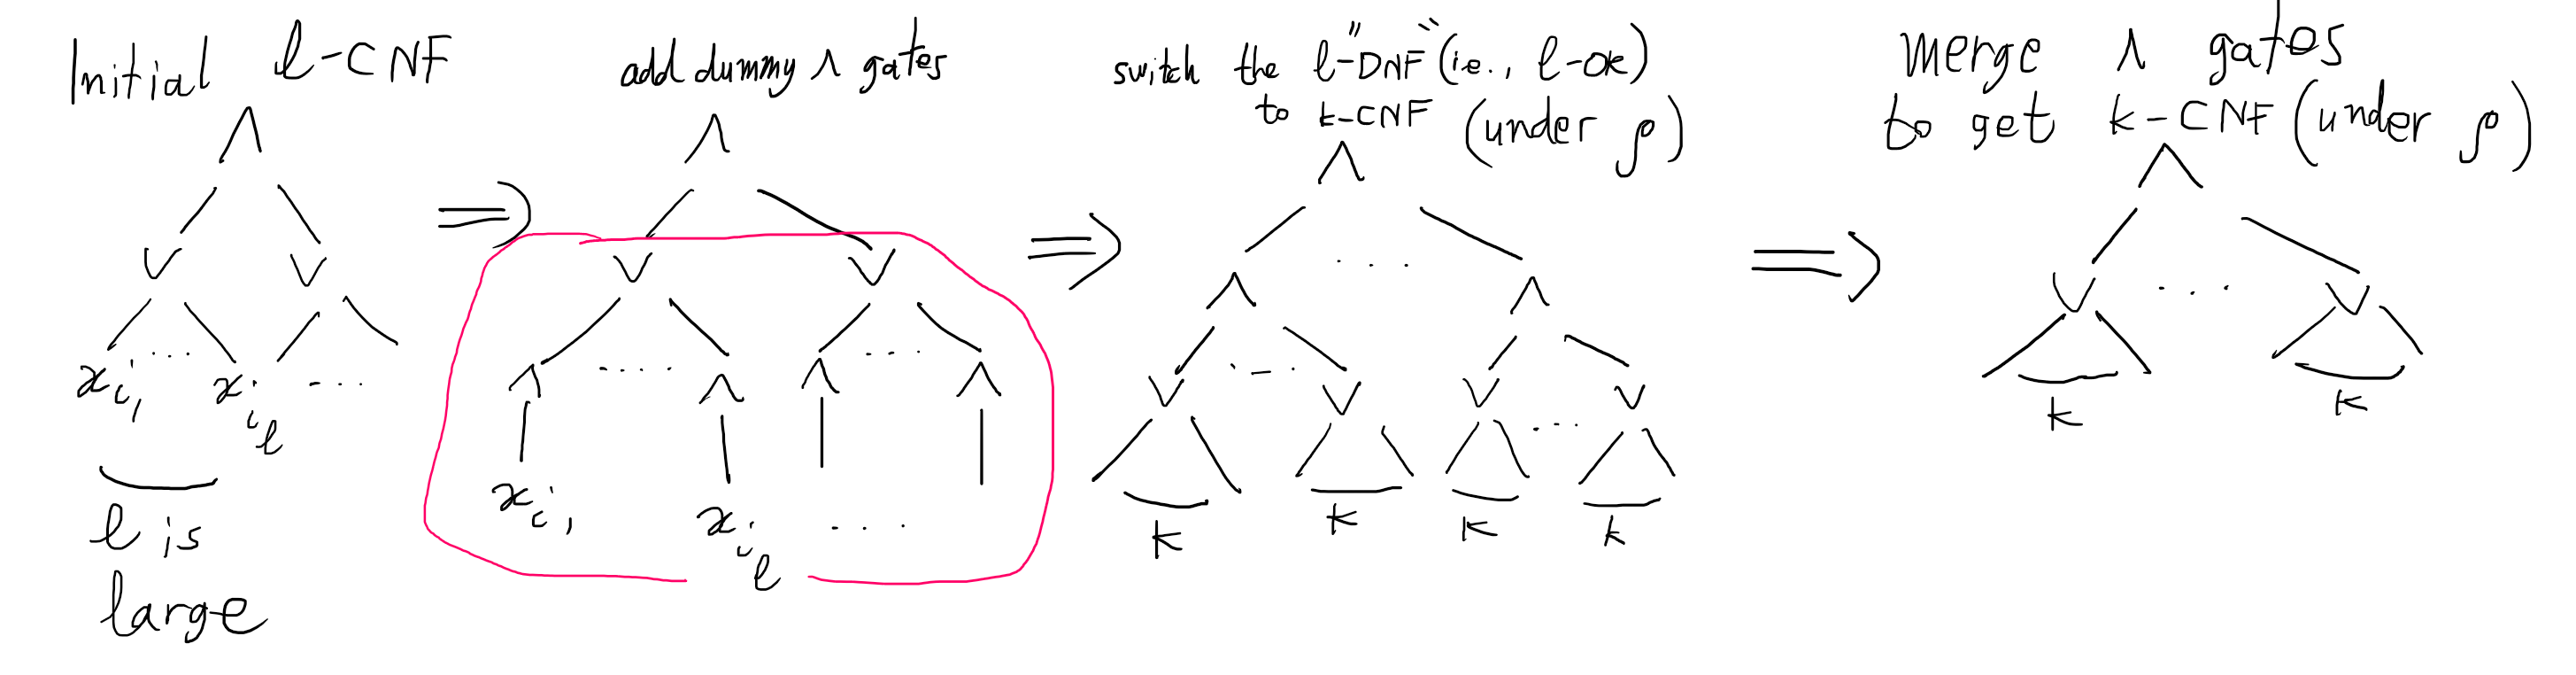 Initial ℓ-CNF
∧
∨ ∨
x_{i_1} ... x_{i_ℓ} ...
ℓ is
large
⇒
add dummy ∧ gates
∧
∨ ∨
∧ .... ∧ ∧ .... ∧
x_{i_1} x_{i_ℓ} ...
⇒
switch the ℓ-"DNF" (i.e., ℓ-OR)
to k-CNF (under ρ)
∧
∧ ... ∧
∨ ... ∨ ∨ ... ∨
k k k k
⇒
merge ∧ gates
to get k-CNF (under ρ)
∧
∨ ... ∨
k k